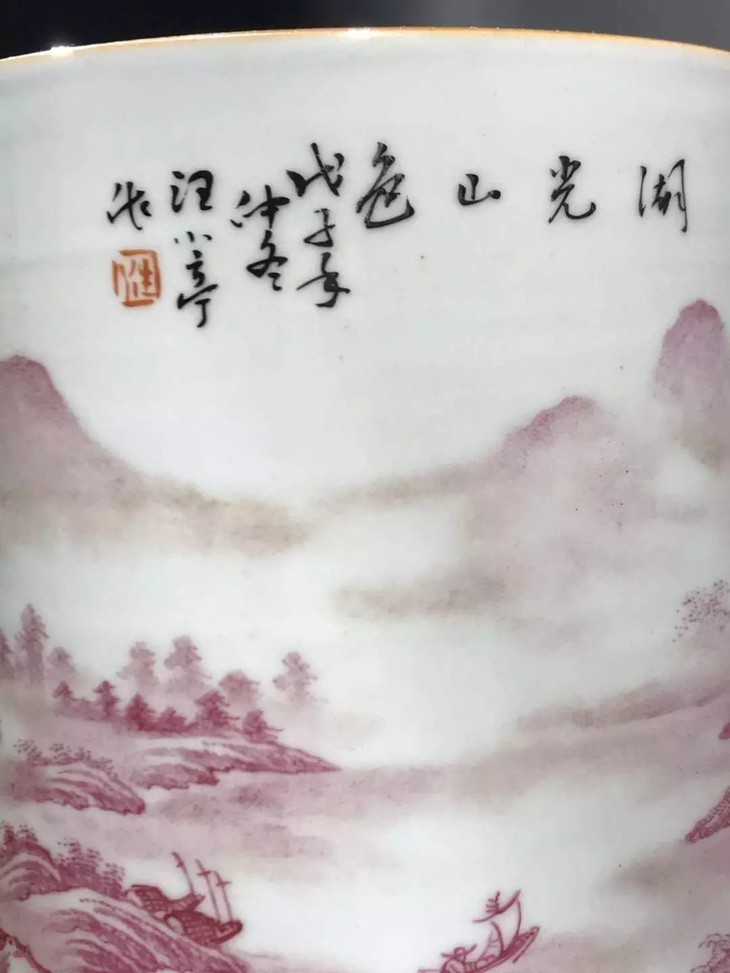 湖光山色
戊子年
仲冬
汪小亭
作